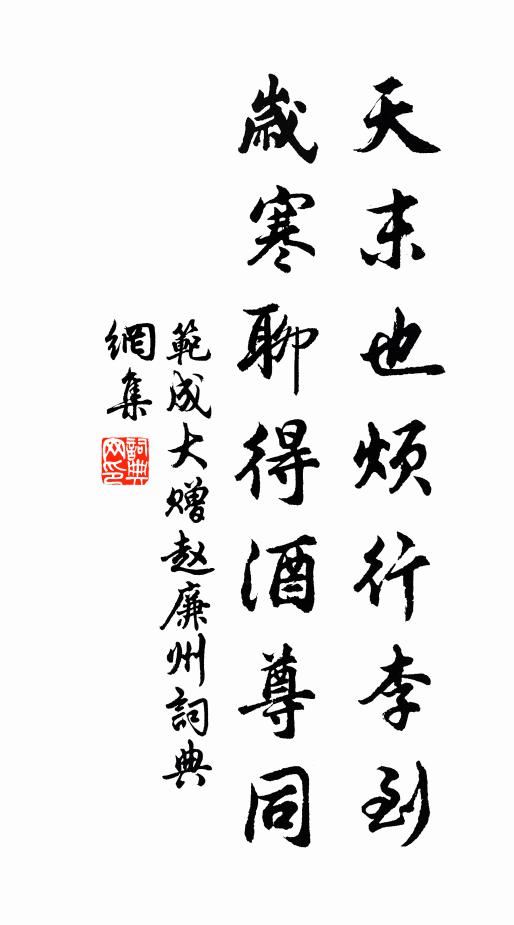 天末也煩行李到
歲寒聊得酒尊同
範成大赠赵廉州詞典
網集
詞典
网印